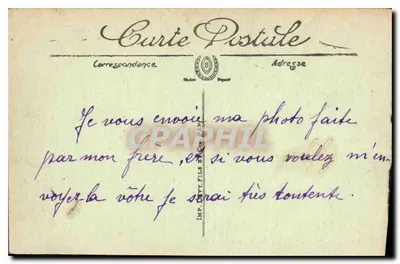 Carte Postale
Correspondance
Adresse
Modèle Déposé
Je vous envoie ma photo faite
CPAPHIL
par mon frère, et si vous voulez m'en-
voyer la vôtre je serai très contente.
IMP. LEVY FILS